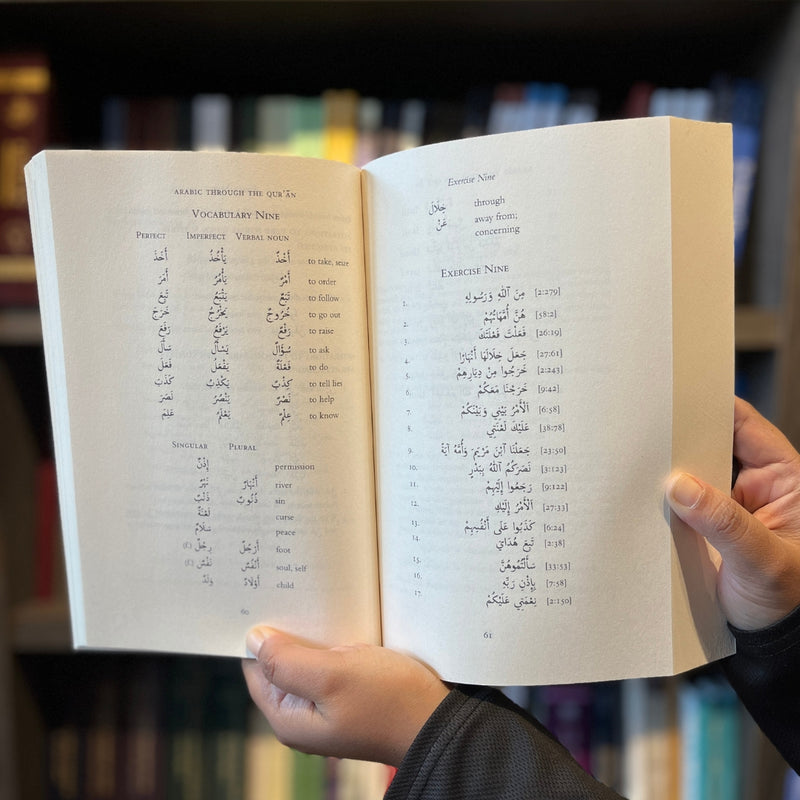 ARABIC THROUGH THE QUR'ĀN
VOCABULARY NINE
PERFECT IMPERFECT VERBAL NOUN
أَخَذَ يَأْخُذُ أَخْذٌ to take, seize
أَمَرَ يَأْمُرُ أَمْرٌ to order
تَبِعَ يَتْبَعُ تَبَعٌ to follow
خَرَجَ يَخْرُجُ خُرُوجٌ to go out
رَفَعَ يَرْفَعُ رَفْعٌ to raise
سَأَلَ يَسْأَلُ سُؤَالٌ to ask
فَعَلَ يَفْعَلُ فَعْلَةٌ to do
كَذَبَ يَكْذِبُ كِذْبٌ to tell lies
نَصَرَ يَنْصُرُ نَصْرٌ to help
عَلِمَ يَعْلَمُ عِلْمٌ to know
SINGULAR PLURAL
إِذْنٌ permission
نَهْرٌ أَنْهَارٌ river
ذَنْبٌ ذُنُوبٌ sin
لَعْنَةٌ curse
سَلَامٌ peace
رِجْلٌ (f.) أَرْجُلٌ foot
نَفْسٌ (f.) أَنْفُسٌ soul, self
وَلَدٌ أَوْلَادٌ child
60
Exercise Nine
خِلَالَ through
عَنْ away from;
concerning
EXERCISE NINE
1. مِنَ ٱللهِ وَرَسُولِهِ [2:279]
2. هُنَّ أُمَّهَاتُهُمْ [58:2]
3. فَعَلْتَ فَعْلَتَكَ [26:19]
4. جَعَلَ خِلَالَهَا أَنْهَارًا [27:61]
5. خَرَجُوا مِنْ دِيَارِهِمْ [2:243]
6. خَرَجْنَا مَعَكُمْ [9:42]
7. ٱلْأَمْرُ بَيْنِي وَبَيْنَكُمْ [6:58]
8. عَلَيْكَ لَعْنَتِي [38:78]
9. جَعَلْنَا ٱبْنَ مَرْيَمَ وَأُمَّهُ آيَةً [23:50]
10. نَصَرَكُمُ ٱللهُ بِبَدْرٍ [3:123]
11. رَجَعُوا إِلَيْهِمْ [9:122]
12. ٱلْأَمْرُ إِلَيْكِ [27:33]
13. كَذَبُوا عَلَى أَنْفُسِهِمْ [6:24]
14. تَبِعَ هُدَايَ [2:38]
15. سَأَلْتُمُوهُنَّ [33:53]
16. بِإِذْنِ رَبِّهِ [7:58]
17. نِعْمَتِي عَلَيْكُمْ [2:150]
61